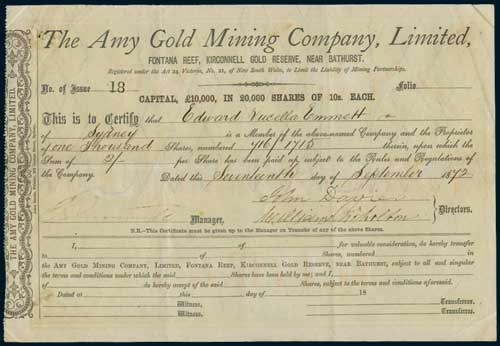 The Amy Gold Mining Company, Limited,
FONTANA REEF, KIRCONNELL GOLD RESERVE, NEAR BATHURST.
Registered under the Act 24 Victoria, No. 21, of New South Wales, to Limit the Liability of Mining Partnerships.
No. of Issue 18 Folio
CAPITAL, £10,000, IN 20,000 SHARES OF 10s. EACH.
This is to Certify that Edward Emmett
of Sydney is a Member of the above-named Company and the Proprietor
of one thousand Shares, numbered 716/1715 therein, upon which the
Sum of 2/- per Share has been paid up, subject to the Rules and Regulations of
the Company. Dated this Seventeenth day of September 1872
John
Manager. William Directors.
N.B.—This Certificate must be given up to the Manager on Transfer of any of the above Shares.
I, of for valuable consideration, do hereby transfer
to of Shares, numbered in
the AMY GOLD MINING COMPANY, LIMITED, FONTANA REEF, KIRCONNELL GOLD RESERVE, NEAR BATHURST, subject to all and singular
the terms and conditions under which the said Shares have been held by me; and I,
of do hereby accept of the said Shares, subject to the terms and conditions aforesaid.
Dated at this day of 18
Witness. Transferror.
Witness. Transferree.
THE AMY GOLD MINING COMPANY, LIMITED.